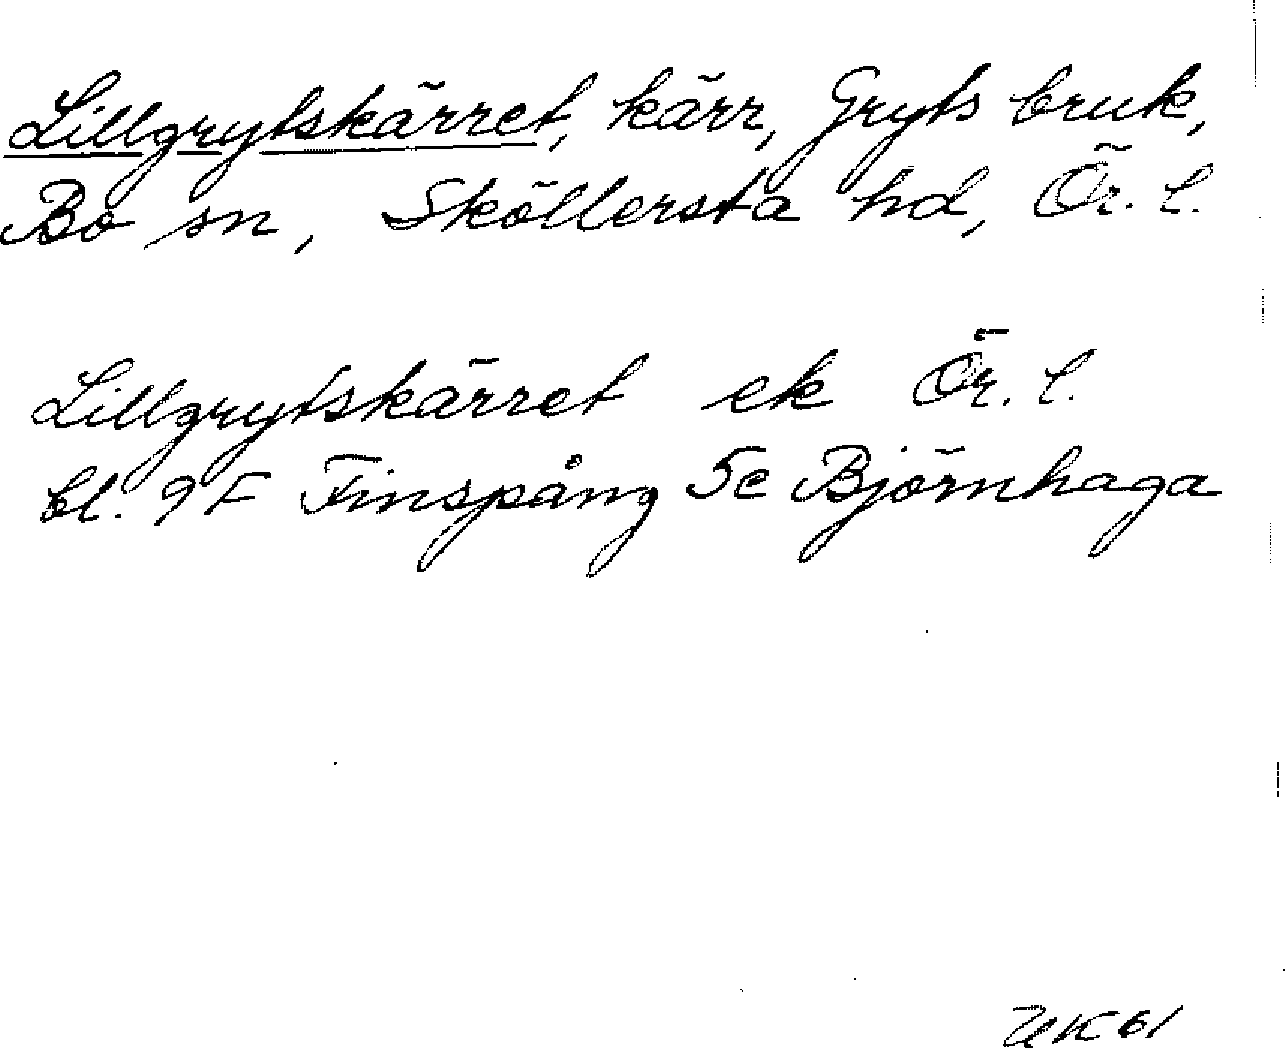 Lillgrytskärret, kärr, Gryts bruk,
Bo sn, Sköllersta hd, Ör. l.
Lillgrytskärret ek Ör. l.
bl. 9F Finspång 5e Björnhaga
UK 61